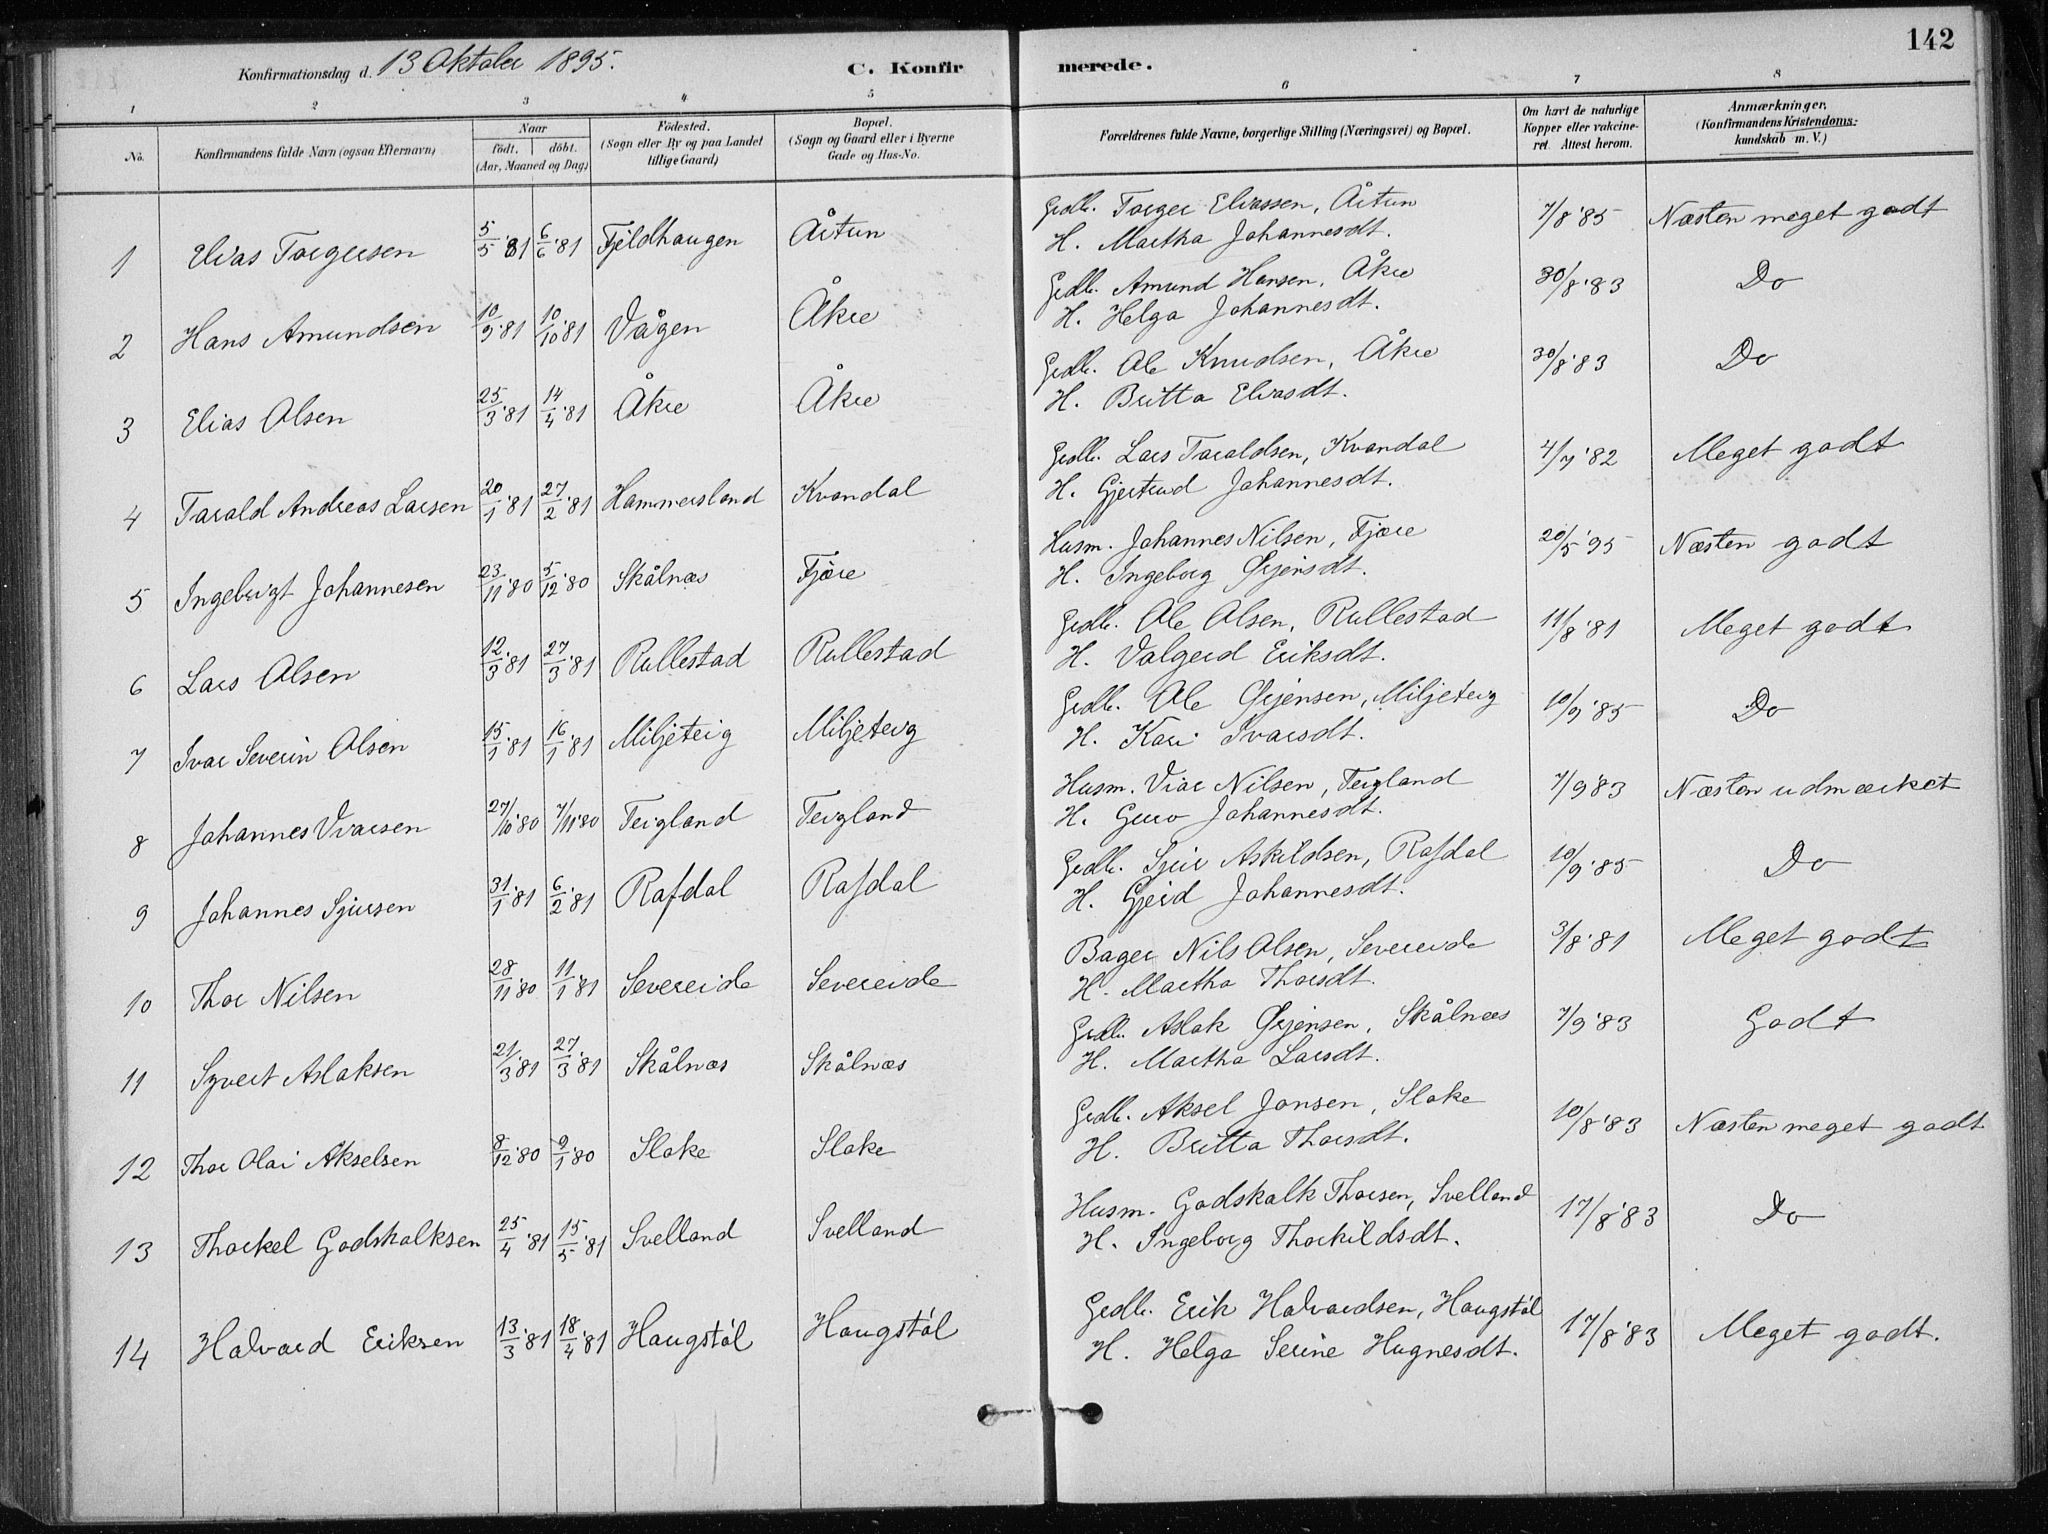 142
Konfirmationsdag d. 13 Oktober 1895.
C. Konfirmerede.
1 2 3 4 5 6 7 8
No. Konfirmandens fulde Navn (ogsaa Efternavn) Naar født. døbt. (Aar, Maaned og Dag) Fødested. (Sogn eller By og paa Landet tillige Gaard) Bopæl. (Sogn og Gaard eller i Byerne Gade og Hus-No. Forældrenes fulde Navne, borgerlige Stilling (Næringsvei) og Bopæl. Om havt de naturlige Kopper eller vakcineret. Attest herom. Anmærkninger. (Konfirmandens Kristendomskundskab m. V.)
1 Elias Torgersen 5/5 '81 6/6 '81 Fjeldhaugen Åitun Grdbr. Torger Eliassen, Åitun 7/8 '85 Næsten meget godt
H. Martha Johannesdt.
2 Hans Amundsen 10/9 '81 10/10 '81 Vågen Åkre Grdbr. Amund Hansen, Åkre 30/8 '83 Do
H. Helga Johannesdt.
3 Elias Olsen 25/3 '81 14/4 '81 Åkre Åkre Grdbr. Ole Knudsen, Åkre 30/8 '83 Do
H. Britta Eliasdt.
4 Tarald Andreas Larsen 20/1 '81 27/2 '81 Hammersland Kvandal Grdbr. Lars Taraldsen, Kvandal 4/7 '82 Meget godt
H. Gjertrud Johannesdt.
5 Ingebrigt Johannesen 23/11 '80 5/12 '80 Skålnæs Fjære Husm. Johannes Nilsen, Fjære 20/5 '95 Næsten godt
H. Ingeborg Ørjensdt.
6 Lars Olsen 12/3 '81 27/3 '81 Rullestad Rullestad Grdbr. Ole Olsen, Rullestad 11/8 '81 Meget godt
H. Valgerd Eriksdt.
7 Ivar Severin Olsen 15/1 '81 16/1 '81 Miljeteig Miljeteig Grdbr. Ole Ørjensen, Miljeteig 10/9 '85 Do
H. Kari Ivarsdt.
8 Johannes Vivarsen 27/10 '80 7/11 '80 Teigland Teigland Husm. Vivar Nilsen, Teigland 7/9 '83 Næsten udmærket
H. Guro Johannesdt.
9 Johannes Sjursen 31/1 '81 6/2 '81 Rafdal Rafdal Grdbr. Sjur Askildsen, Rafdal 10/9 '85 Do
H. Gjerd Johannesdt.
10 Thor Nilsen 28/11 '80 11/1 '81 Severeide Severeide Bager Nils Olsen, Severeide 3/8 '81 Meget godt
H. Martha Thorsdt.
11 Syvert Aslaksen 21/3 '81 27/3 '81 Skålnæs Skålnæs Grdbr. Aslak Ørjensen, Skålnæs 7/9 '83 Godt
H. Martha Larsdt.
12 Thor Olai Akselsen 8/12 '80 9/1 '80 Slake Slake Grdbr. Aksel Jonsen, Slake 10/8 '83 Næsten meget godt
H. Britta Thorsdt.
13 Thorkel Godskalksen 25/4 '81 15/5 '81 Svelland Svelland Husm. Godskalk Thorsen, Svelland 17/8 '83 Do
H. Ingeborg Thorkildsdt.
14 Halvard Eriksen 13/3 '81 18/4 '81 Haugstøl Haugstøl Grdbr. Erik Halvardsen, Haugstøl 17/8 '83 Meget godt.
H. Helga Serine Hugnesdt.